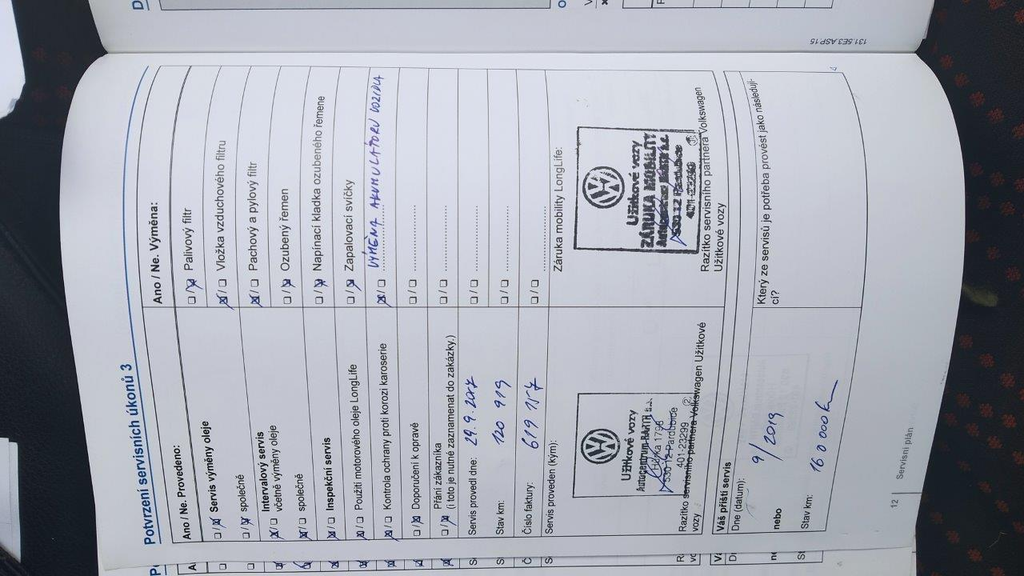 Potvrzení servisních úkonů 3
Ano / Ne. Provedeno:
Servis výměny oleje
společně
Intervalový servis
včetně výměny oleje
společně
Inspekční servis
Použití motorového oleje LongLife
Kontrola ochrany proti korozi karoserie
Doporučení k opravě
Přání zákazníka
(i toto je nutné zaznamenat do zakázky.)
Servis provedl dne: 29.9.2017
Stav km: 120 919
Číslo faktury: 619157
Servis proveden (kým):
Užitkové vozy
530 12 Pardubice
401-23299
Razítko servisního partnera Volkswagen Užitkové
vozy
Ano / Ne. Výměna:
Palivový filtr
Vložka vzduchového filtru
Pachový a pylový filtr
Ozubený řemen
Napínací kladka ozubeného řemene
Zapalovací svíčky
VÝMĚNA AKUMULÁTORU VOZIDLA
Záruka mobility LongLife:
Užitkové vozy
ZÁRUKA MOBILITY
530 12 Pardubice
401-23299
Razítko servisního partnera Volkswagen
Užitkové vozy
Váš příští servis
Dne (datum): 9/2019
nebo
Stav km:
Který ze servisů je potřeba provést jako následují-
cí?
12 | Servisní plán
131.5E3.ASP.15